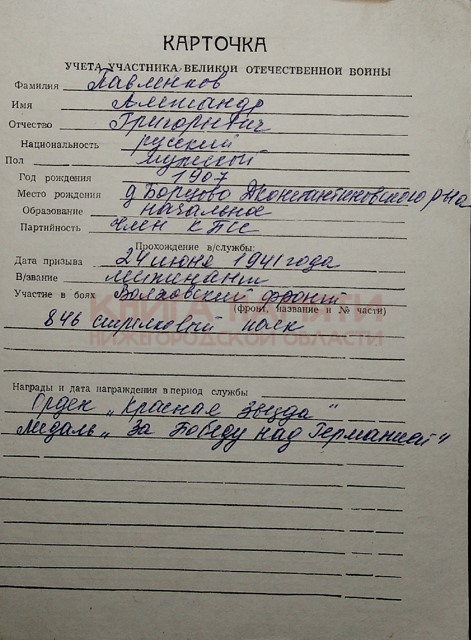 КАРТОЧКА
УЧЕТА УЧАСТНИКА ВЕЛИКОЙ ОТЕЧЕСТВЕННОЙ ВОЙНЫ
Фамилия Павленков
Имя Александр
Отчество Григорьевич
Национальность русский
Пол мужской
Год рождения 1907
Место рождения д Борцово Дконстантиновского р-на
Образование начальное
Партийность член КПСС
Прохождение в/службы:
Дата призыва 24 июня 1941 года
В/звание лейтенант
Участие в боях Волховский фронт
(фронт, название и № части)
846 стрелковый полк
КНИГА ПАМЯТИ
НИЖЕГОРОДСКОЙ ОБЛАСТИ
Награды и дата награждения в период службы
Орден „Красная Звезда"
Медаль „За Победу над Германией"